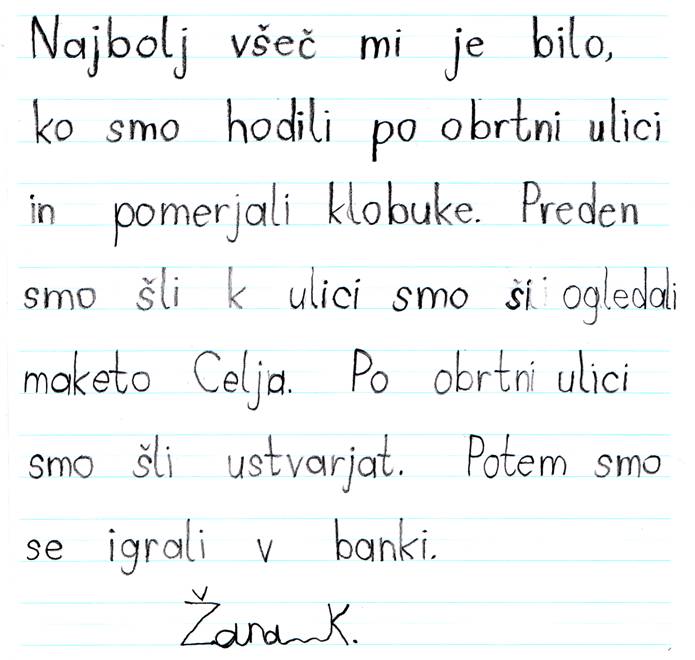 Najbolj všeč mi je bilo,
ko smo hodili po obrtni ulici
in pomerjali klobuke. Preden
smo šli k ulici smo ši ogledali
maketo Celja. Po obrtni ulici
smo šli ustvarjat. Potem smo
se igrali v banki.
Žana K.